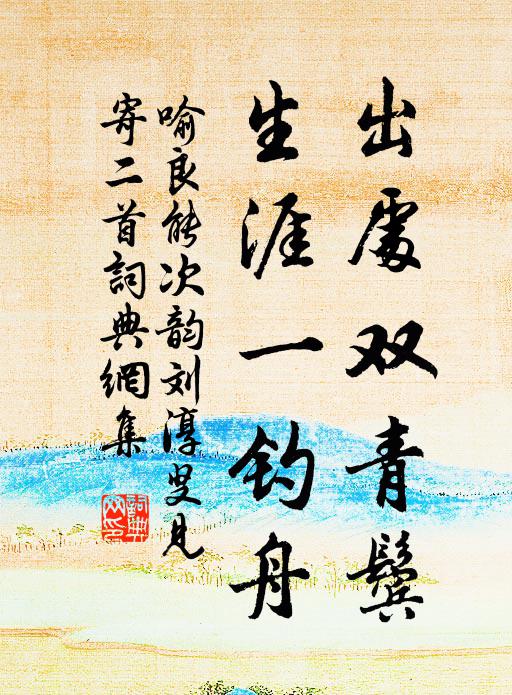 出處双青鬓
生涯一钓舟
喻良能次韵刘淳叟见
寄二首詞典網集
詞典